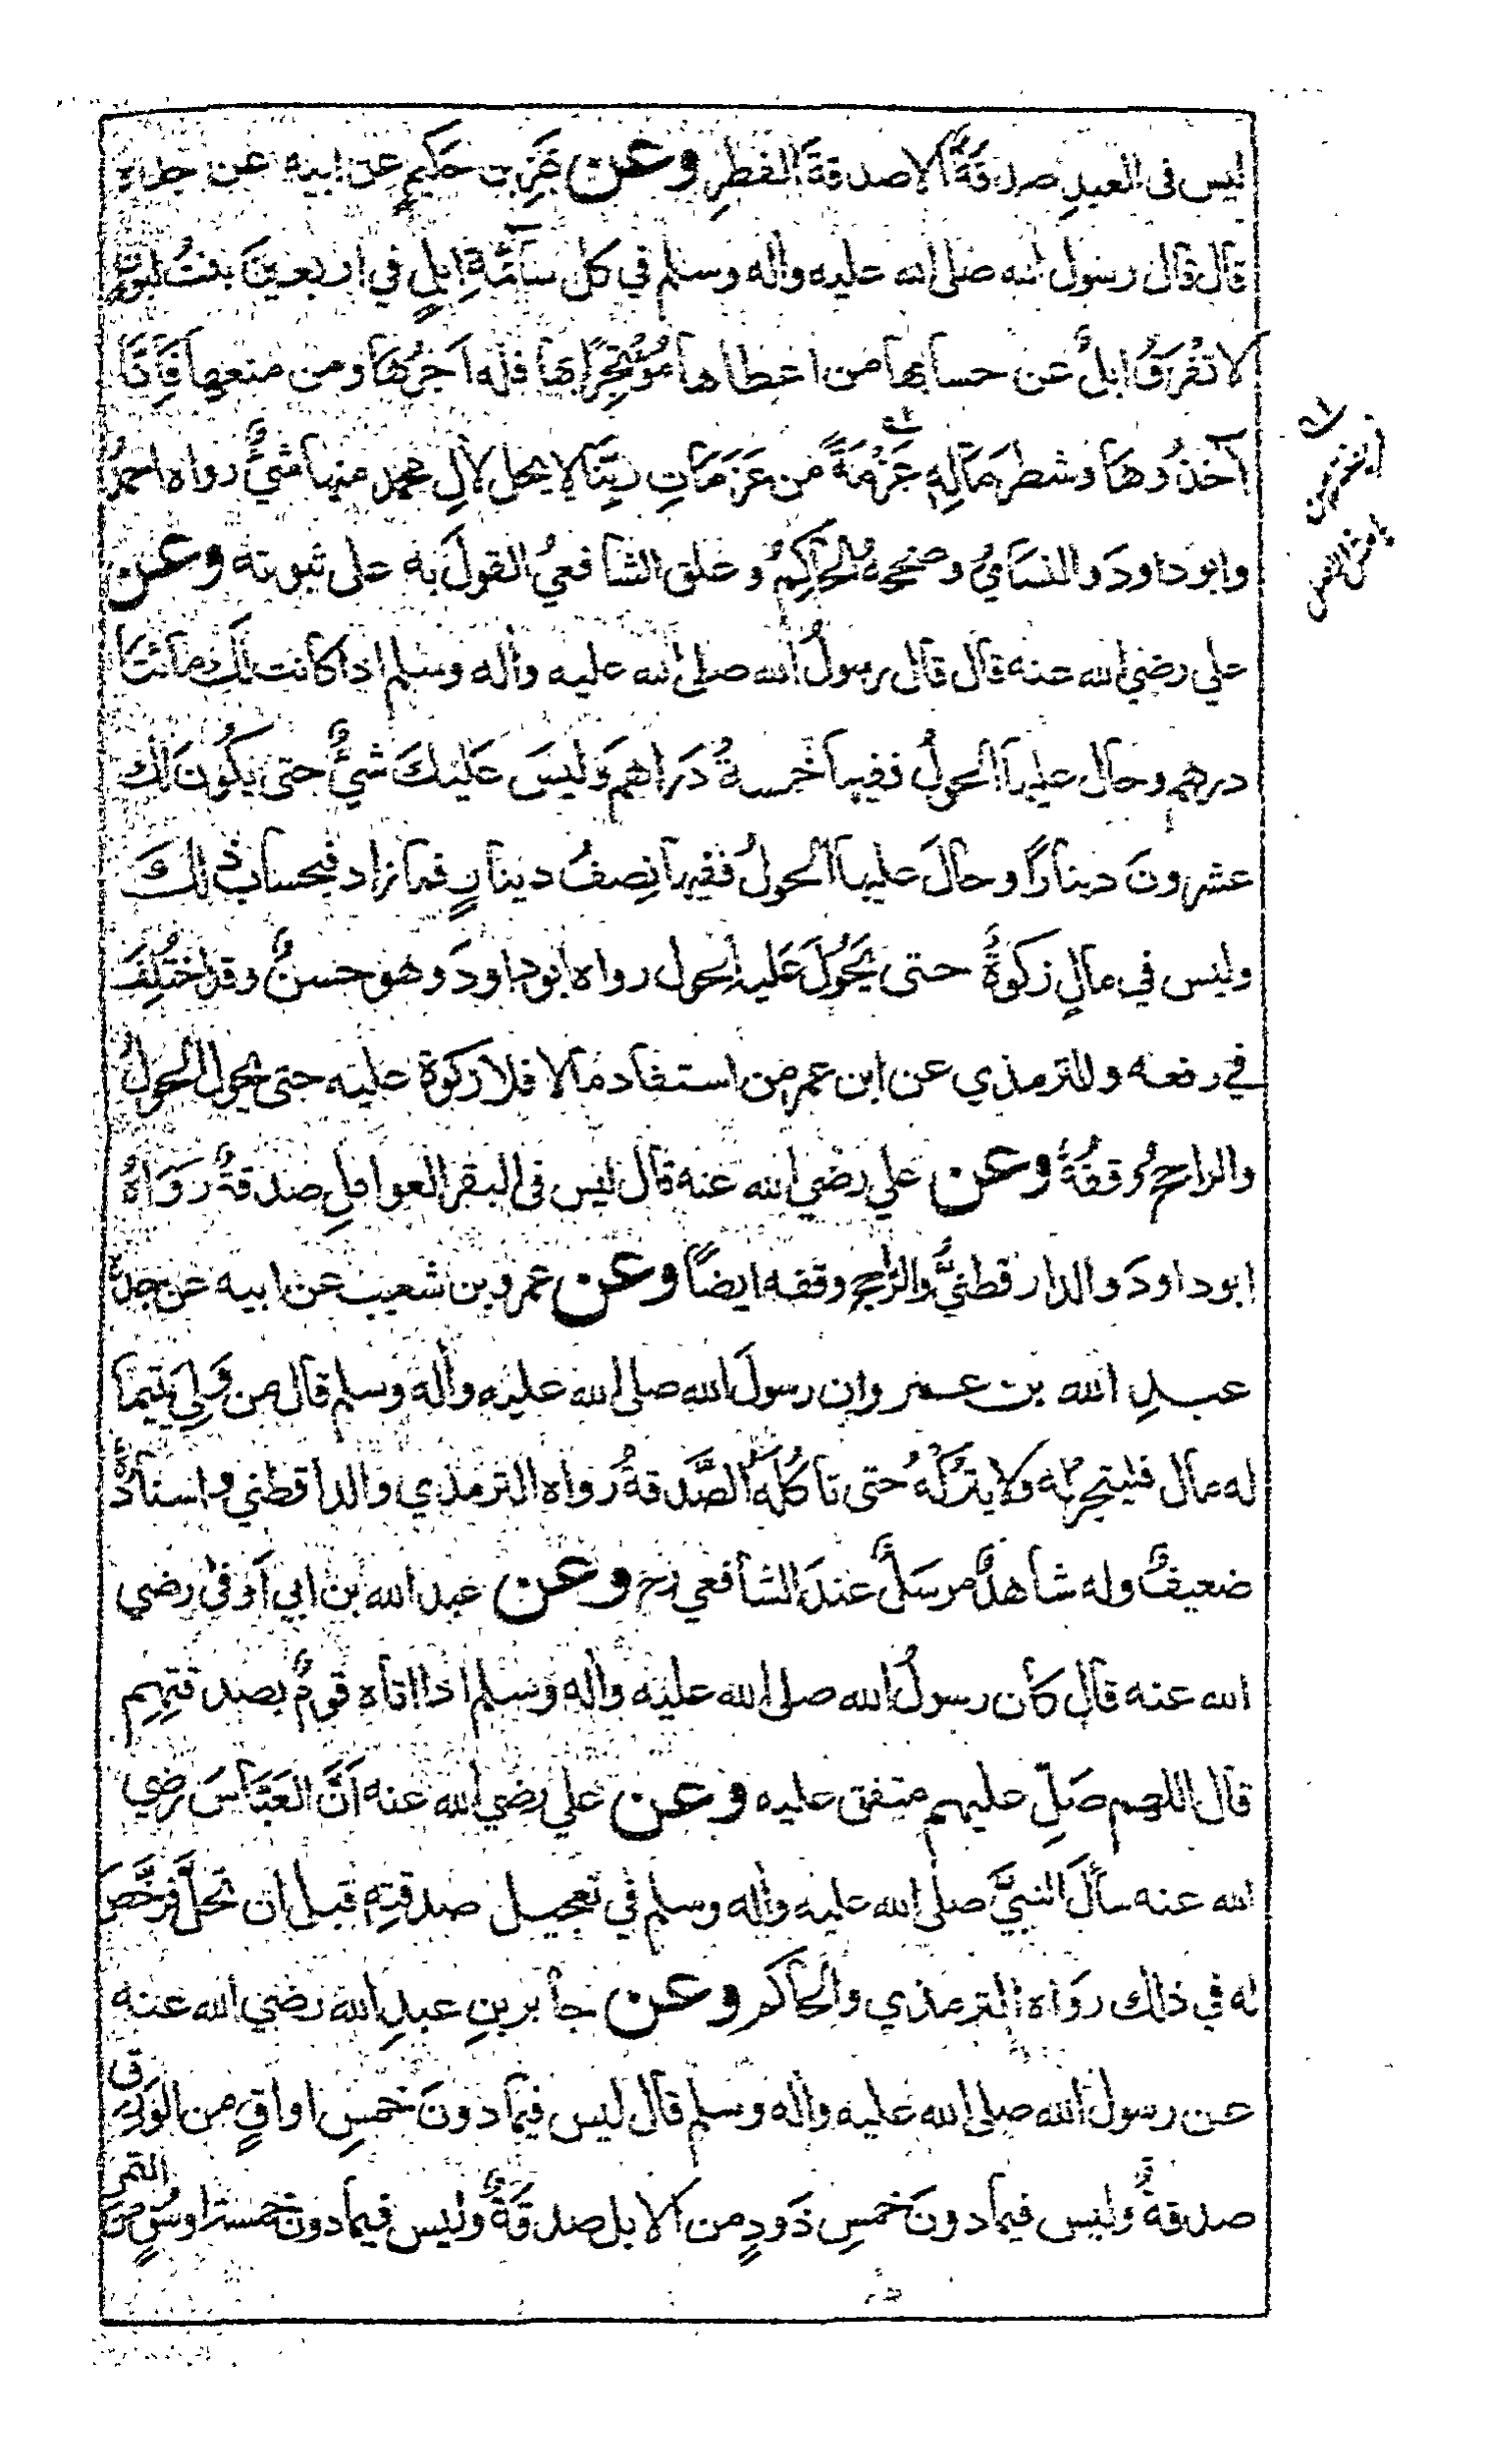 ليس فى العبدِ صدقةٌ الا صدقةَ الفطرِ وعن بَهْزِبن حكيمٍ عن ابيه عن جده
قال قال رسول الله صلى الله عليه واٰله وسلم في كل سآئمة اِبلٍ في اربعينَ بنتُ لبونٍ
لا تفرقُ ابلٌ عن حسابها من اعطاها مُؤْتَجِرًا بها فله اَجرُها ومن منعها فَاِنَّا
آخذُوها وشطرَمَالِهِ عَزْمَةً من عَزَمَاتِ رَبِّنَا لا يحل لاٰلِ محمد منها شئٌ رواه احمدُ
وابوداودَ والنسَائيُ وصححهُ الحاكِمُ وعلق الشافعيُ القولَ به على ثبوته وعن
علي رضي الله عنه قال قال رسولُ الله صلى الله عليه واٰله وسلم اذا كانت لك مائتا
درهم وحال عليها الحولُ ففيها خمسةُ دَراهم وَليسَ عَليكَ شئٌ حتى يكُونَ لك
عشرونَ دينارًا وحالَ عليها الحولُ ففيها نِصفُ دينارٍ فما زاد فبحساب ذٰلكَ
وليس في مالٍ زكوةٌ حتى يَحُولَ عَليه الحول رواه ابوداودَ وهو حسنٌ وقد اختُلِفَ
في رفعه وللترمذي عن ابن عمر من استفاد مالا فلا زكوة عليه حتى يحول الحولُ
والراجح وقفهُ وعن علي رضي الله عنه قال ليس فى البقر العواملِ صدقةٌ رَوَاهُ
ابوداودَ والدارقطنيُّ والراجح وقفه ايضًا وعن عمروبن شعيب عن ابيه عن جدهٖ
عبدِ الله بن عمروان رسولَ الله صلى الله عليه واٰله وسلم قال من وَلِيَ يتيمًا
له مال فليتجر له ولا يتركْهُ حتى تاكُلَهُ الصَّدقةُ رواه الترمذي والداقطني واسنادُهٗ
ضعيفٌ وله شاهدٌ مرسَلٌ عندَ الشافعي رح وعن عبد الله بن ابي اَوفى رضي
الله عنه قال كان رسولُ الله صلى الله عليه واٰله وسلم اذا اتاه قومٌ بصدقتِهِم
قال اللهم صَلِّ عليهم متفق عليه وعن علي رضي الله عنه اَنَّ العَبَّاسَ رضي
الله عنه سألَ النبيَّ صلى الله عليه واٰله وسلم في تعجيل صدقتِهِ قبل ان تحلَّ فرخَّصَ
له في ذٰلك رَوَاه الترمذي والحاكم وعن جابربنِ عبدِ الله رضي الله عنه
عن رسول الله صلى الله عليه واٰله وسلم قال ليس فيما دونَ خمسِ اواقٍ من الوَرِقِ
صدقةٌ وليس فيما دونَ خمسِ ذَودٍ من الابل صدقَةٌ وليس فيما دون خمسة اوسُقٍ من التمر